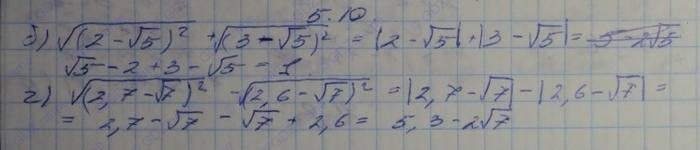 5.10.
б) √(2 - √5)² + √(3 - √5)² = |2 - √5| + |3 - √5| = 5 - 2√5
√5 - 2 + 3 - √5 = 1
г) √(2,7 - √7)² - √(2,6 - √7)² = |2,7 - √7| - |2,6 - √7| =
= 2,7 - √7 - √7 + 2,6 = 5,3 - 2√7